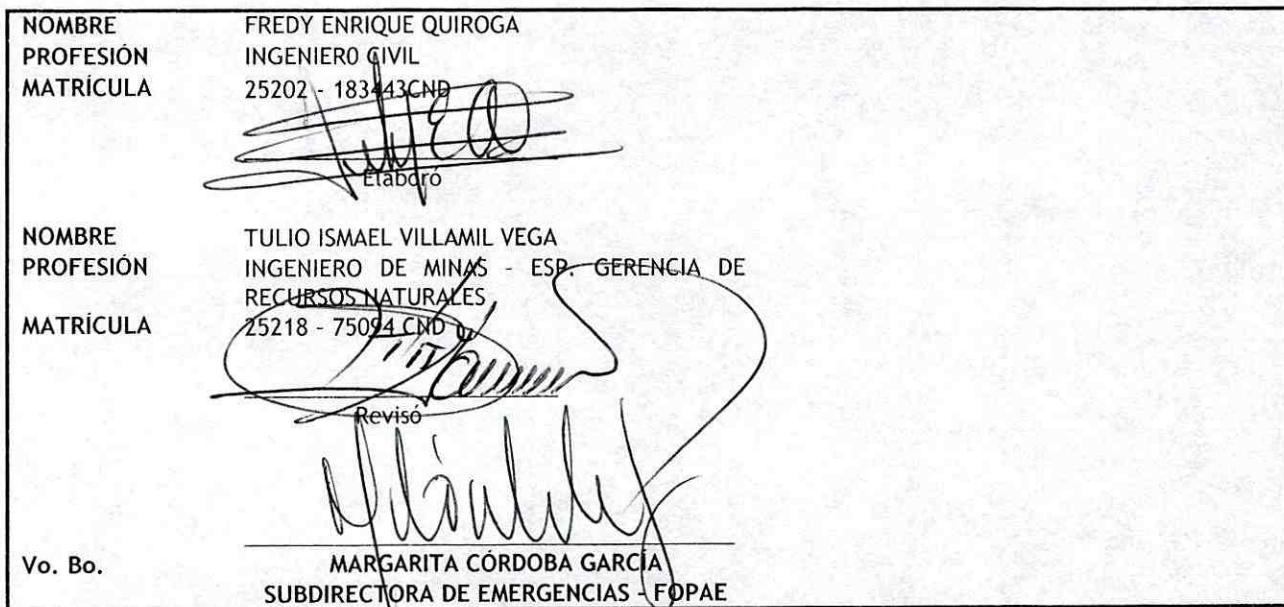 NOMBRE FREDY ENRIQUE QUIROGA
PROFESIÓN INGENIERO CIVIL
MATRÍCULA 25202 - 183443CND
Elaboró
NOMBRE TULIO ISMAEL VILLAMIL VEGA
PROFESIÓN INGENIERO DE MINAS - ESP. GERENCIA DE
RECURSOS NATURALES
MATRÍCULA 25218 - 75094 CND
Revisó
Vo. Bo. MARGARITA CÓRDOBA GARCÍA
SUBDIRECTORA DE EMERGENCIAS - FOPAE